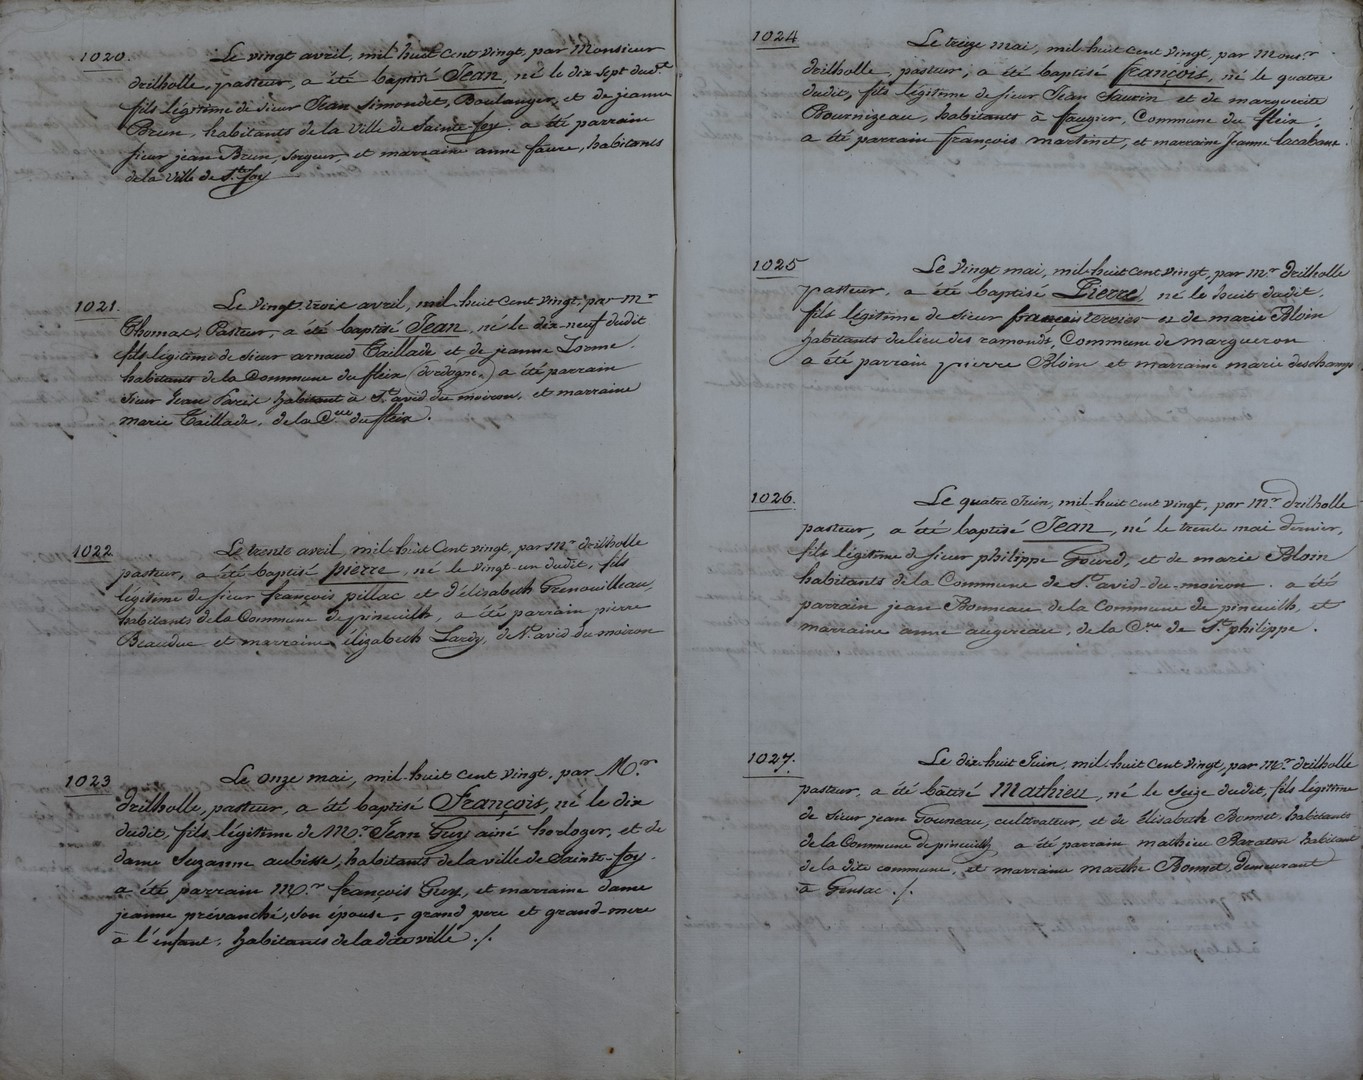 1020. Le vingt avril, mil huit cent vingt, par Monsieur
drilholle, pasteur, a été baptisé Jean, né le dix sept dudt
fils légitime de sieur Jean Simondet, Boulanger, et de jeanne
Brun, habitants de la ville de Sainte-foy. a été parrain
sieur jean Brun, et marraine anne faure, habitants
de la ville de Ste foy
1021. Le vingt-trois avril, mil-huit cent vingt, par mr
Thomas, Pasteur, a été baptisé Jean, né le dix-neuf dudit
fils légitime de sieur arnaud Taillade et de jeanne Lorme,
habitants de la Commune du fleix (dordogne.) a été parrain
sieur Jean habitant à St avid du moiron, et marraine
marie Taillade, de la Cne du fleix.
1022 Le trente avril, mil-huit Cent vingt, par mr drilholle
pasteur, a été baptisé pierre, né le vingt-un dudit, fils
légitime de sieur françois pillac et d'élisabeth Grenouilleau,
habitants de la Commune de pineuilh, a été parrain pierre
Beauduc et marraine élizabeth Lardy, de St avid du moiron
1023 Le onze mai, mil-huit cent vingt, par Mr
drilholle, pasteur, a été baptisé François, né le dix
dudit, fils légitime de Mr Jean Guy ainé horloger, et de
dame Suzanne aubisse, habitants de la ville de Sainte-foy.
a été parrain Mr françois Guy, et marraine dame
jeanne prévanché, son épouse, grand pere et grand-mere
à l'enfant, habitants de la dite ville ./.
1024 Le treize mai, mil-huit cent vingt, par Monsr
drilholle, pasteur, a été baptisé françois, né le quatre
dudit, fils légitime de sieur Jean Saurin et de marguerite
Bournizeau, habitants à faugier, Commune du fleix,
a été parrain françois martinet, et marraine Jeanne Lacabane.
1025 Le vingt mai, mil-huit cent vingt, par mr drilholle
pasteur, a été baptisé Pierre, né le huit dudit,
fils légitime de sieur françois terrier et de marie Bloin
habitants du lieu des ramonds, Commune de margueron
a été parrain pierre Bloin et marraine marie deschamps
1026. Le quatre Juin, mil-huit cent vingt, par mr drilholle
pasteur, a été baptisé Jean, né le trente mai dernier,
fils légitime de sieur philippe Gourd, et de marie Bloin
habitants de la Commune de St avid-du-moiron. a été
parrain jean Bonneau, de la Commune de pineuilh, et
marraine anne augereau, de la Cne de St philippe.
1027. Le dix-huit Juin, mil-huit cent vingt, par mr drilholle
pasteur, a été batisé Mathieu, né le Seize dudit, fils légitime
de sieur jean Gouneau, cultivateur, et de Elisabeth Bonnet, habitants
de la Commune de pineuilh, a été parrain mathieu Baraton habitant
de la dite commune, et marraine marthe Bonnet, demeurant
à Gensac ./.